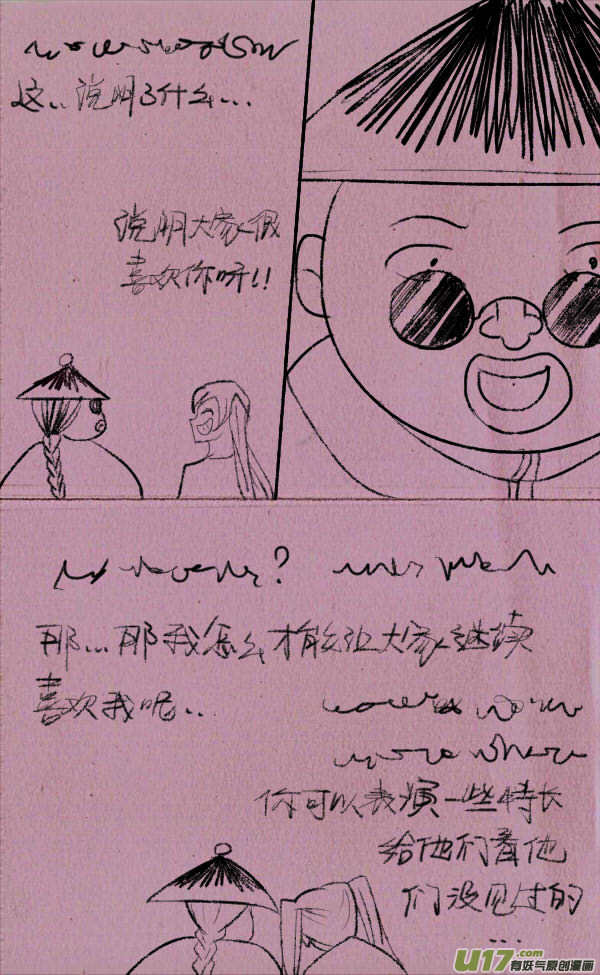 这..说明了什么...
说明大家很
喜欢你呀!!
那...那我怎么才能让大家继续
喜欢我呢..
你可以表演一些特长
给他们看他
们没见过的
...
U17.com
有妖气原创漫画